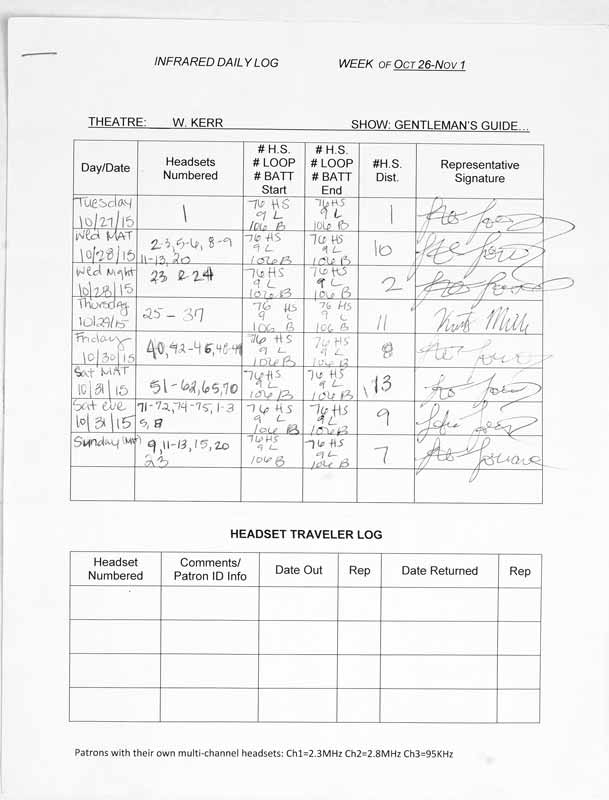 INFRARED DAILY LOG WEEK OF OCT 26-NOV 1
THEATRE: W. KERR SHOW: GENTLEMAN'S GUIDE...
Day/Date Headsets Numbered # H.S. # LOOP # BATT Start # H.S. # LOOP # BATT End #H.S. Dist. Representative Signature
Tuesday 10/27/15 1 76 HS 9 L 106 B 76 HS 9 L 106 B 1
Wed MAT 10/28/15 2-3, 5-6, 8-9 11-13, 20 76 HS 9 L 106 B 76 HS 9 L 106 B 10
Wed Night 10/28/15 23 & 24 76 HS 9 L 106 B 76 HS 9 L 106 B 2
Thursday 10/29/15 25-37 76 HS 9 L 106 B 76 HS 9 L 106 B 11
Friday 10/30/15 40, 42-46, 76 HS 9 L 106 B 76 HS 9 L 106 B 8
Sat MAT 10/31/15 51-62, 65, 70 76 HS 9 L 106 B 76 HS 9 L 106 B 13
Sat eve 10/31/15 71-72, 74-75, 1-3 5, 8 76 HS 9 L 106 B 76 HS 9 L 106 B 9
Sunday (MAT) 9, 11-13, 15, 20 23 76 HS 9 L 106 B 76 HS 9 L 106 B 7
HEADSET TRAVELER LOG
Headset Numbered Comments/ Patron ID Info Date Out Rep Date Returned Rep
Patrons with their own multi-channel headsets: Ch1=2.3MHz Ch2=2.8MHz Ch3=95KHz